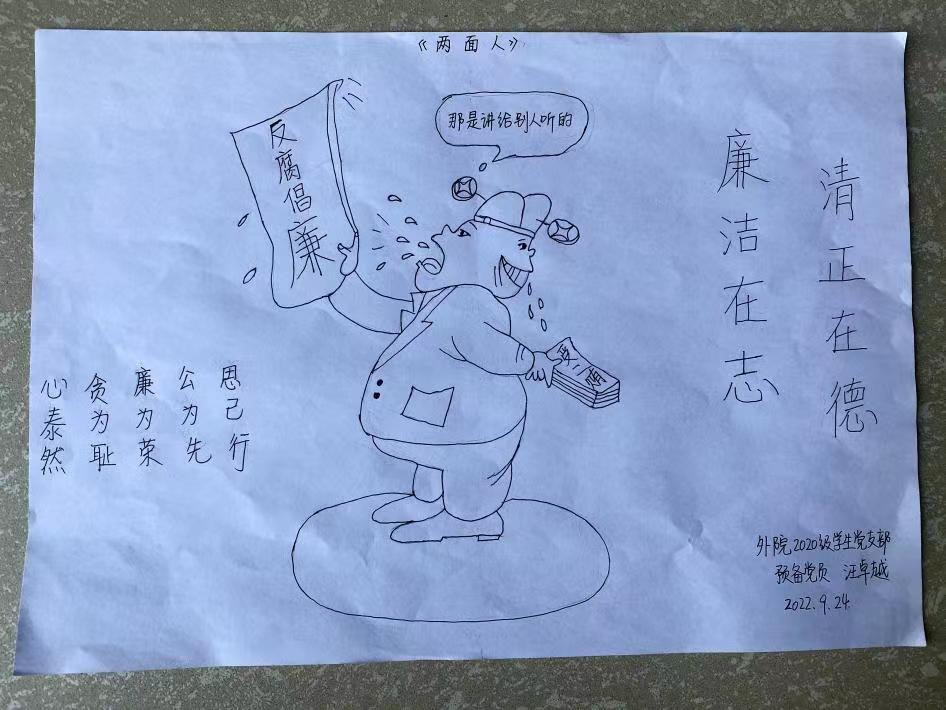 《两面人》
那是讲给别人听的
反腐倡廉
清正在德
廉洁在志
思己行
公为先
廉为荣
贪为耻
心泰然
外院2020级学生党支部
预备党员 汪卓越
2022.9.24.